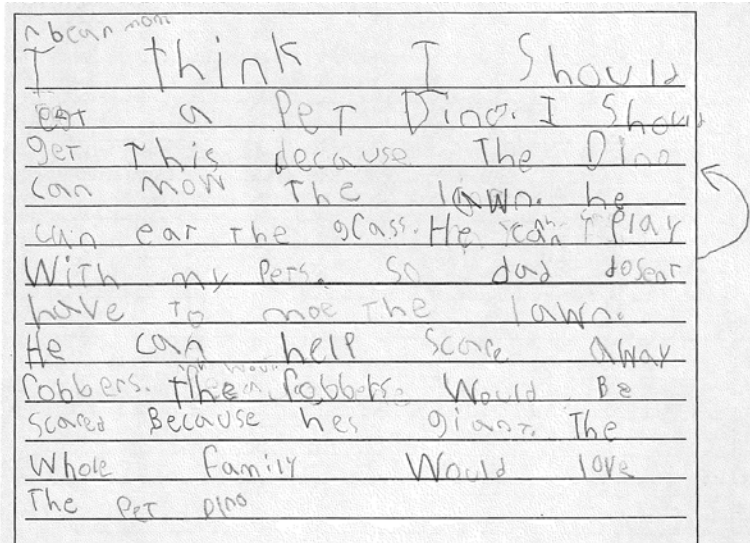 mom
I think I Should
get a Pet Dino. I Shoud
get This because The Dino
can mow The lawn. he
can eat the grass. He can Play
With my Pets. So dad dosent
have To moe The lawn.
He can help scare away
robbers. The robbers Would Be
scared Because hes giant. The
Whole family Would love
The Pet Dino